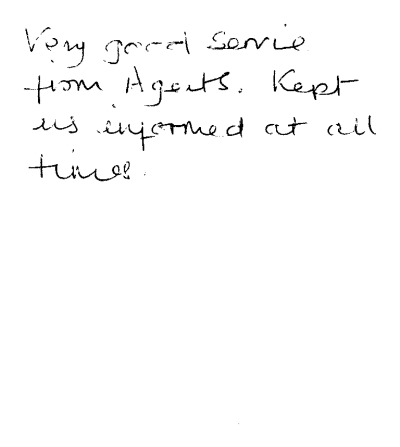 Very good Servie
from Agents. Kept
us informed at all
times.